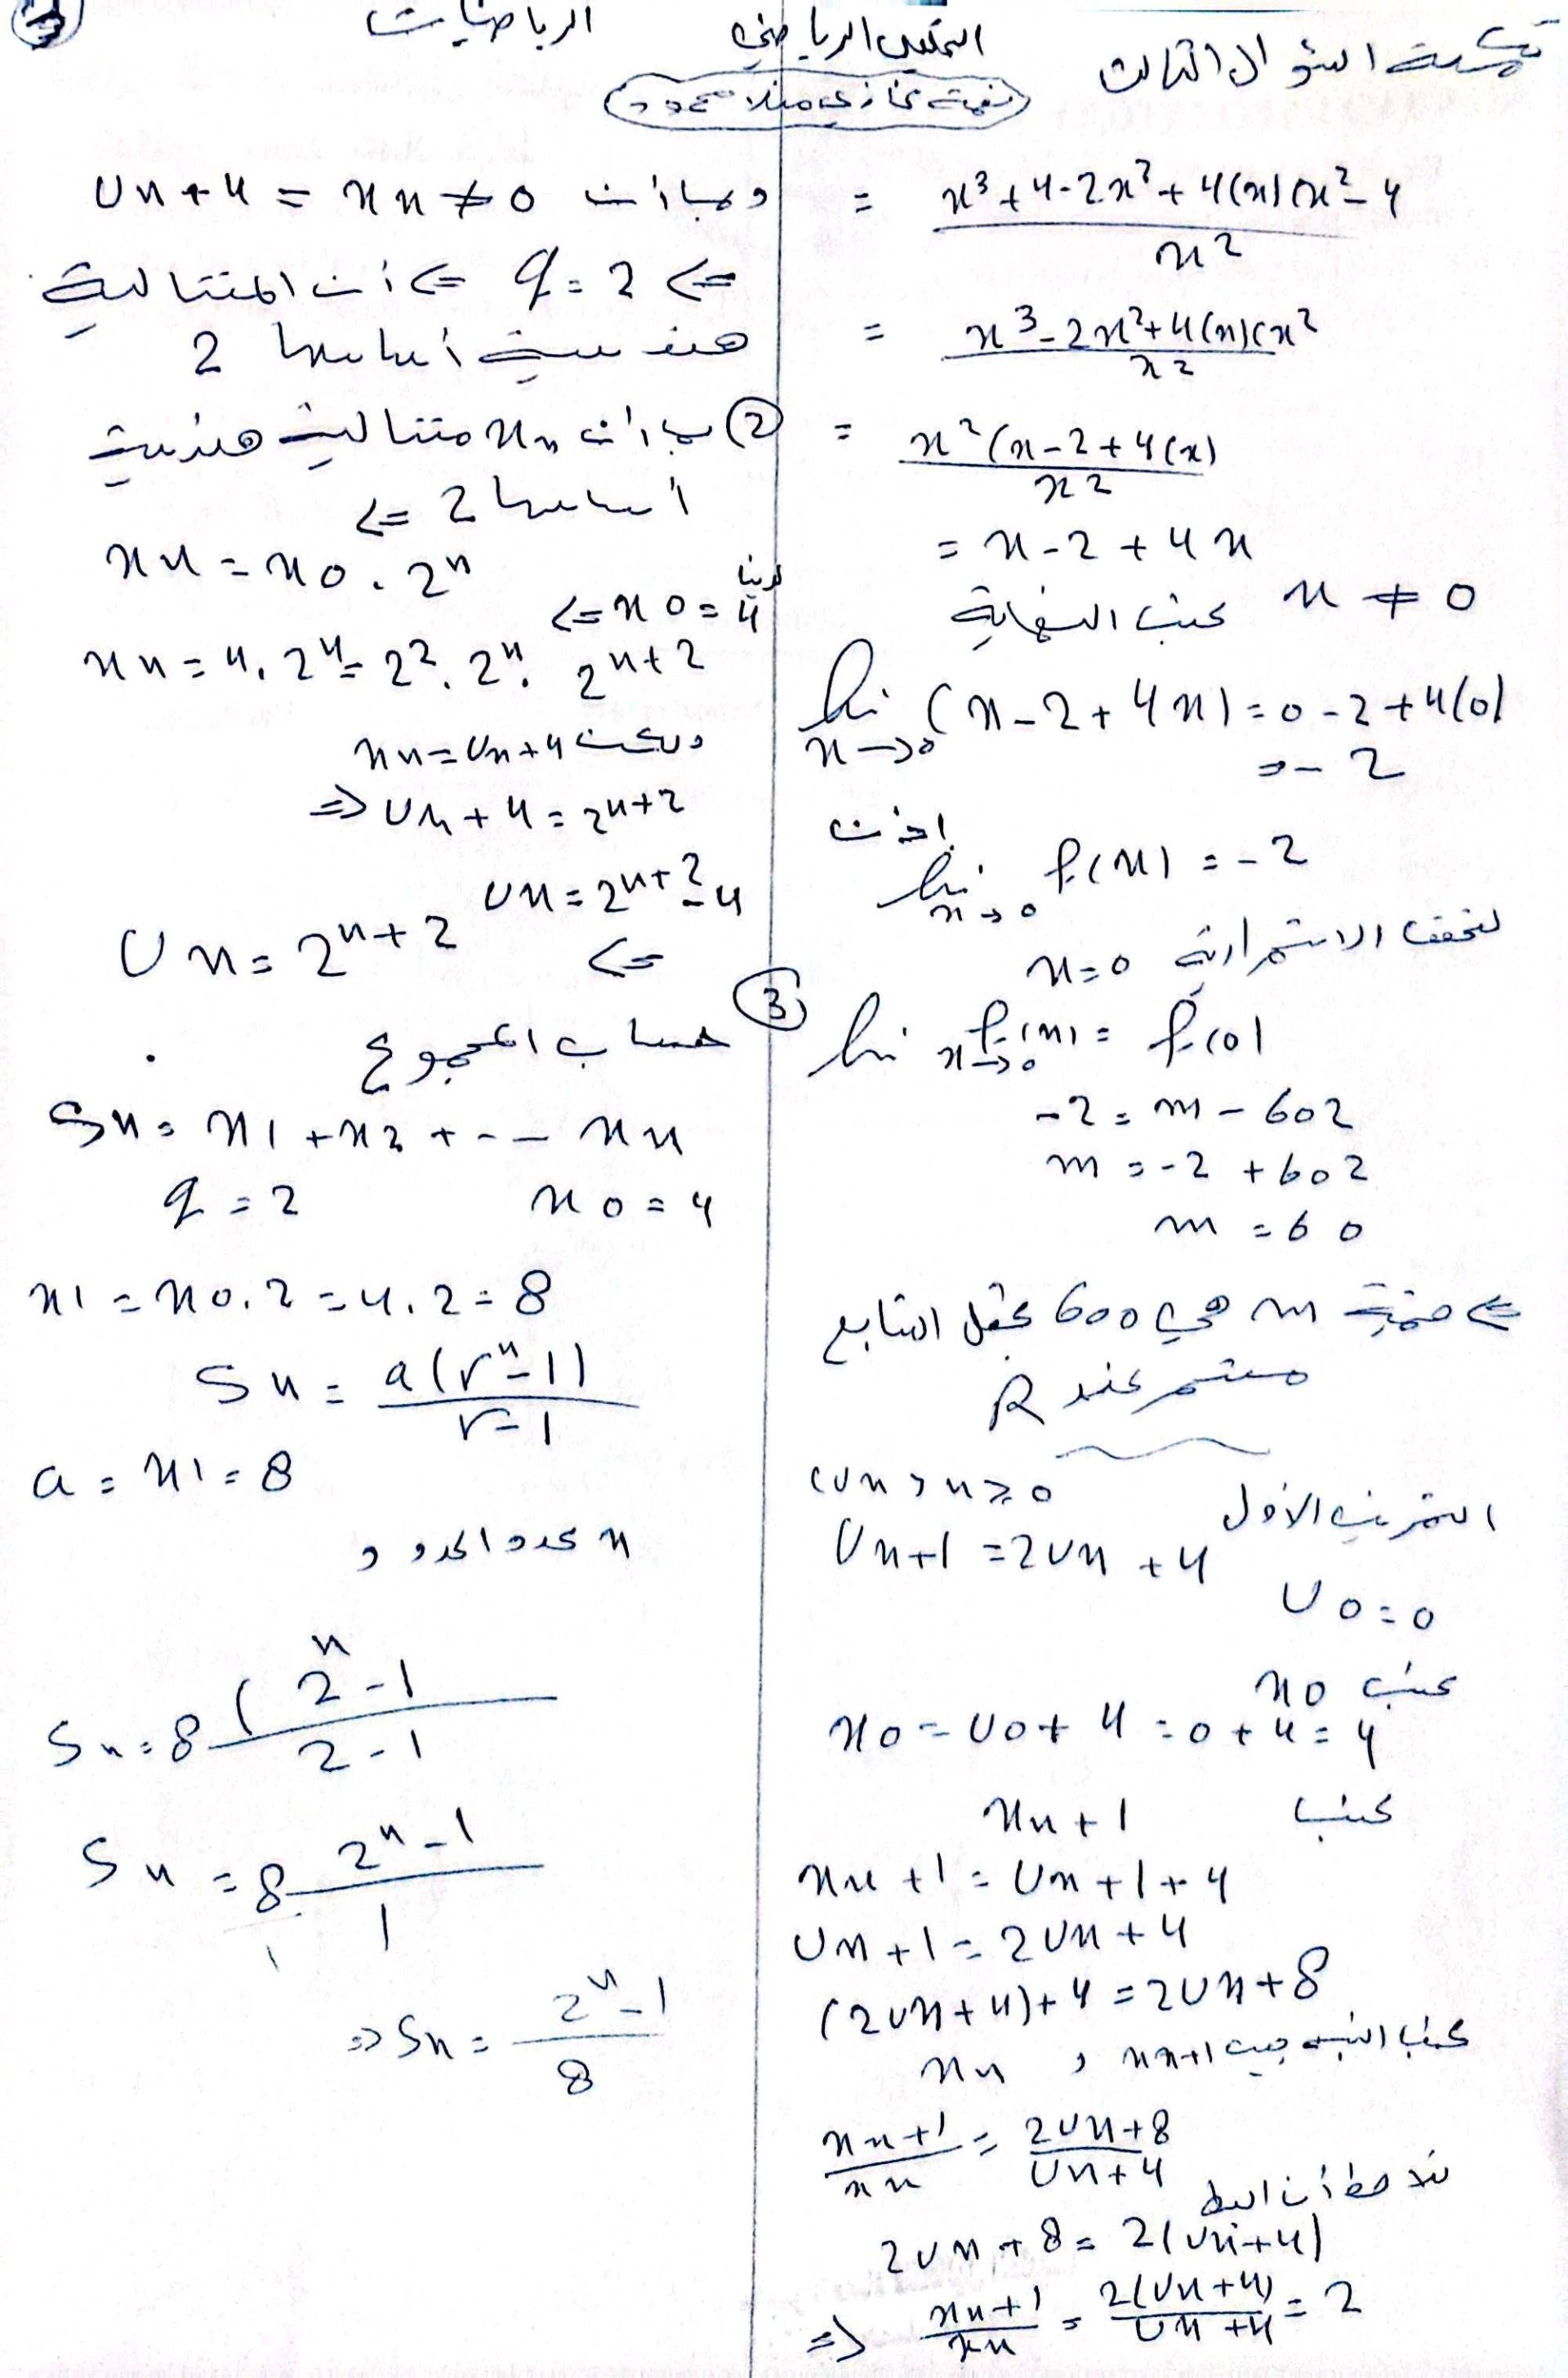 تكملة السؤال الثالث التحليل الرياضي الرياضيات 3
= x³+4-2x²+4(x)(x²-4 / x²
= x³-2x²+4(x)(x² / x²
= x²(x-2+4(x) / x²
= x-2+4x
x ≠ 0 نحسب النهاية
lim x→0 (x-2+4x)=0-2+4(0)
=-2
إذن
lim x→0 f(x) = -2
لتحقق الاستمرارية x=0
lim x→0 f(x) = f(0)
-2 = m - 602
m = -2 + 602
m = 60
⇐ قيمة m هي 600 تجعل التابع
مستمر عند R
التمرين الأول (Un)n≥0
Un+1 = 2Un + 4
U0=0
نحسب x0
x0 = U0 + 4 = 0 + 4 = 4
نحسب xn+1
xn+1 = Un+1+4
Un+1 = 2Un+4
(2Un+4)+4 = 2Un+8
نحسب النسبة بين xn+1 و xn
xn+1 / xn = 2Un+8 / Un+4
نلاحظ أن البسط
2Un+8 = 2(Un+4)
⇒ xn+1 / xn = 2(Un+4) / Un+4 = 2
وبما أن Un+4 = xn ≠ 0
⇐ q = 2 ⇐ أن المتتالية
هندسية أساسها 2
② بما أن xn متتالية هندسية
أساسها 2 ⇐
xn = x0 . 2ⁿ
لدينا x0 = 4 ⇐
xn = 4 . 2ⁿ = 2² . 2ⁿ . 2ⁿ⁺²
ولكن xn = Un+4
⇒ Un+4 = 2ⁿ⁺²
Un = 2ⁿ⁺² - 4
⇐ Un = 2ⁿ⁺²
③ حساب المجموع
Sn = x1 + x2 + -- xn
q = 2 x0 = 4
x1 = x0 . 2 = 4 . 2 = 8
Sn = a(rⁿ-1) / r-1
a = x1 = 8
n عدد الحدود
Sn = 8 (2ⁿ-1 / 2-1
Sn = 8 2ⁿ-1 / 1
⇒ Sn = 2ⁿ-1 / 8